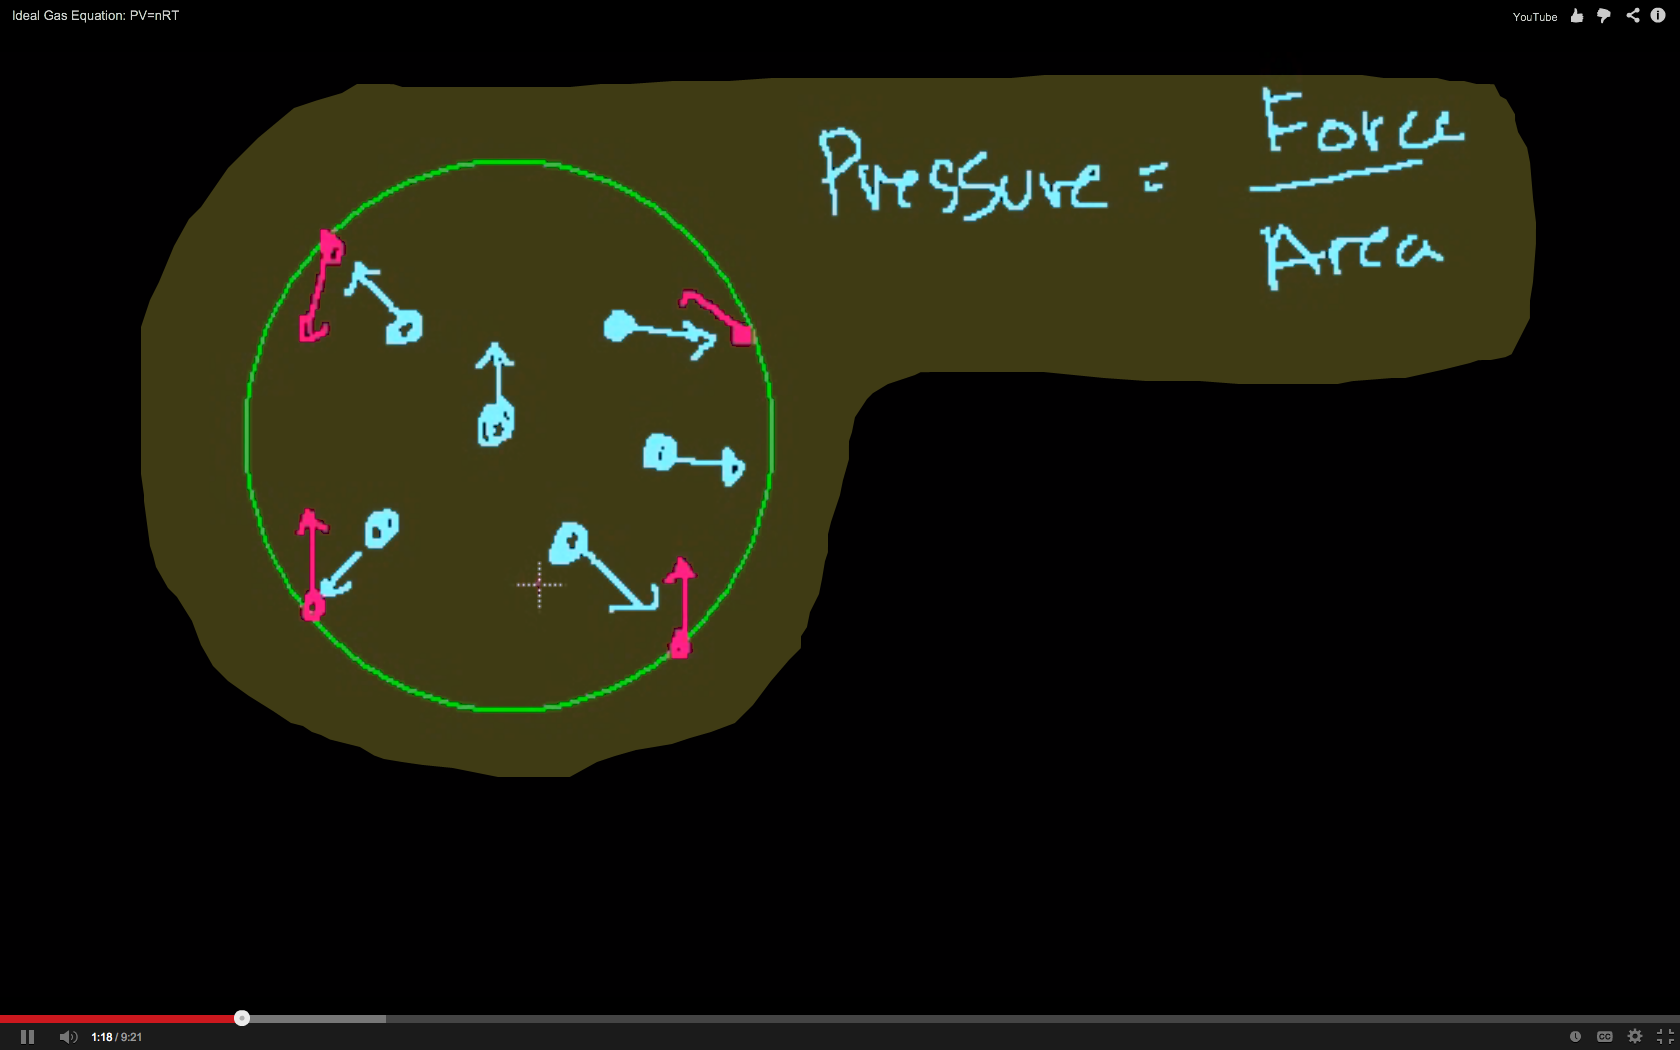 Ideal Gas Equation: PV=nRT
YouTube
Pressure = Force
Area
1:18 / 9:21
CC